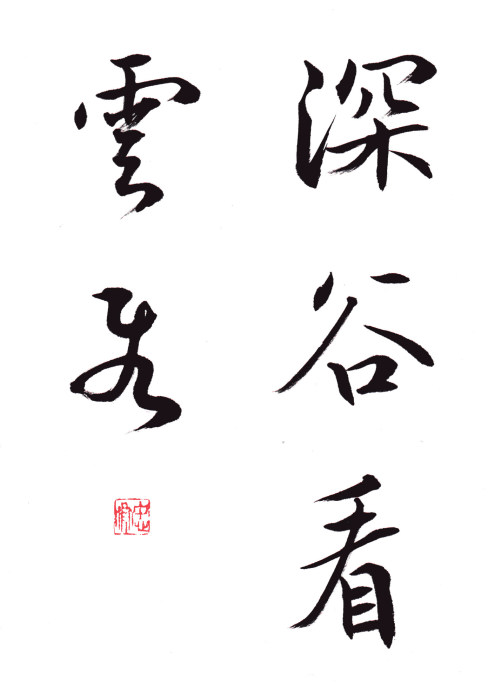 深谷看
雲